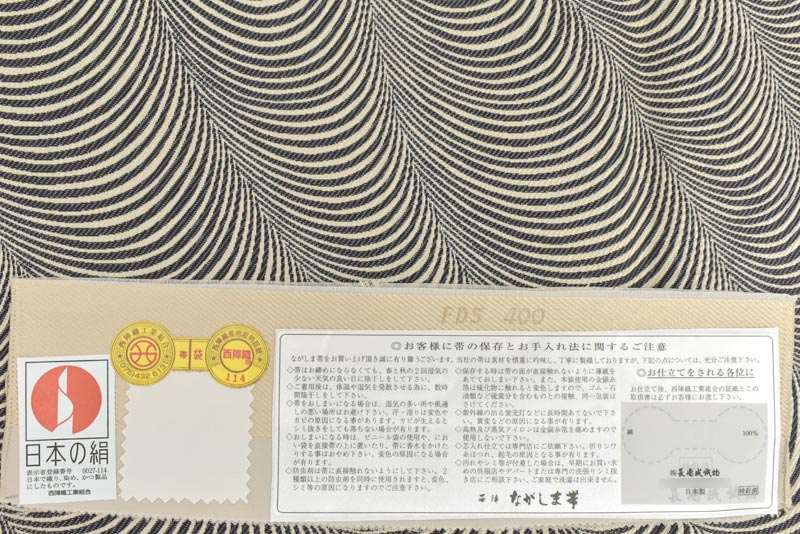 FDS 400
西陣織工業組合
(075)432-6131
帯 袋
西陣織
114
日本の絹
表示者登録番号 0027-114
日本で織り、染め、かつ製品
にしたものです。
西陣織工業組合
◎お客様に帯の保存とお手入れ法に関するご注意
ながしま帯をお買い上げ頂き誠に有り難うございます。当社の帯は素材を慎重に吟味し、丁寧に製織しておりますが、下記の点については、充分ご注意下さい。
◇帯はお締めにならなくても、春と秋の2回湿気の
少ない天気の良い日に陰干しをして下さい。
◇ご着用後は、体温や湿気を発散させる為に、数時
間陰干しをして下さい。
◇帯をおしまいになる場合は、湿気の多い所や風通
しの悪い場所はお避け下さい。汗・湿りは変色や
カビの原因になる事があります。カビが生えると
シミ抜きをしても落ちない場合が有ります。
◇おしまいになる時は、ビニール袋の使用や、にお
い袋を直接帯の上に置いたり、帯に香水をかけた
りする事はおやめ下さい。変色の原因になる場合
が有ります。
◇防虫剤は帯に直接触れないようにして下さい。2
種類以上の防虫剤を同時に使用されますと、変色、
シミ等の原因になりますのでご注意下さい。
◇保存する時は帯の面が直接触れないように薄紙を
あてておしまい下さい。また、本銀使用の金銀糸
箔は硫化物に触れると変色しますので、ゴム・石
油類など硫黄分を含むものとの接触、同一包装は
さけてください。
◇紫外線の出る蛍光灯などに長時間あてないで下さ
い。黄変などの原因になる事が有ります。
◇高熱及び蒸気アイロンは金銀糸箔を痛めますので
使用しないで下さい。
◇芯入れ仕立ては専門店にご依頼下さい。折りシワ、
糸はつれ、起毛の原因となる事が有ります。
◇汚れやシミ等が付着した場合は、早期にお買い求
めの呉服店やデパートまたは専門の洗張りシミ抜
き店にご相談下さい。ご家庭で洗濯は出来ません。
西陣 ながしま帯
◎お仕立てをされる各位に
お仕立て後、西陣織工業組合の証紙とこの
取扱書は必ずお客様にお渡し下さい。
絹 100%
㈱長嶋成織物
日本製